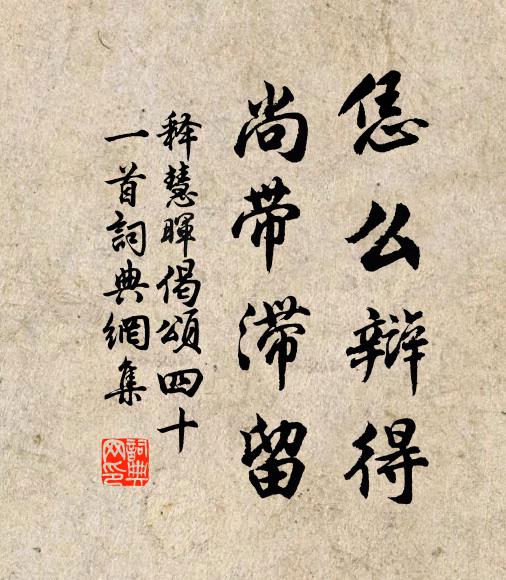 恁么辩得
尚带滞留
释慧暉偈頌四十
一首詞典網集
詞典
网印